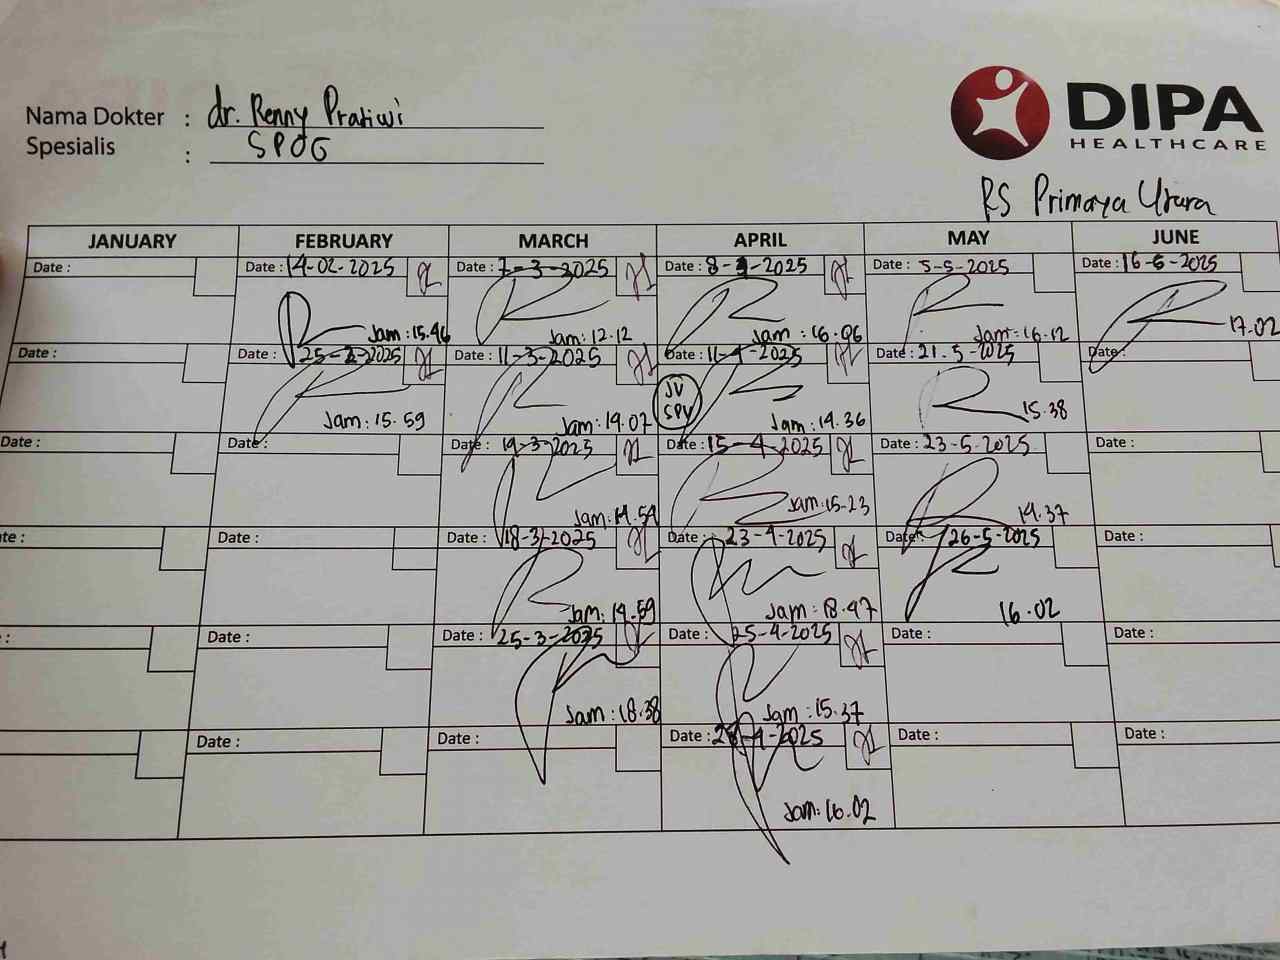 Nama Dokter : dr. Renny Pratiwi
Spesialis : SPOG
DIPA
HEALTHCARE
RS Primaya Utara
JANUARY FEBRUARY MARCH APRIL MAY JUNE
Date : Date : 14-02-2025 Date : 7-3-2025 Date : 8-4-2025 Date : 5-5-2025 Date : 16-6-2025
Jam : 15.46 Jam : 12.12 Jam : 16.06 Jam : 16.12 17.02
Date : Date : 25-2-2025 Date : 11-3-2025 Date : 11-4-2025 Date : 21.5-2025 Date :
JV
SPV
Jam : 15.59 Jam : 14.07 Jam : 14.36 15.38
Date : Date : Date : 14-3-2025 Date : 15-4-2025 Date : 23-5-2025 Date :
Jam : 14.54 Jam : 15-23 14.37
te : Date : Date : 18-3-2025 Date : 23-4-2025 Date : 26-5-2025 Date :
Jam : 14.59 Jam : 18.47 16.02
: Date : Date : 25-3-2025 Date : 25-4-2025 Date : Date :
Jam : 18.38 Jam : 15.37
: Date : Date : Date : 28-4-2025 Date : Date :
Jam : 16.02